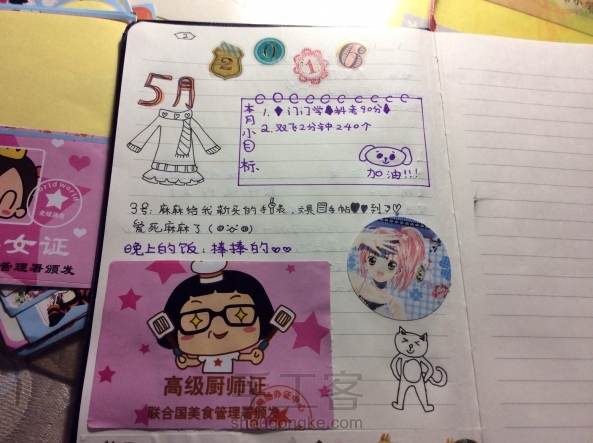 2
2016
5月
本月小目标
1. 门门学科考90分
2. 双飞2分钟240个
加油!!!
3号:麻麻给我新买的手表、文具
到了
爱死麻麻了
晚上的饭:棒棒的
女证
管理署颁发
高级厨师证
联合国美食管理署颁发
手工客
shougongke.com